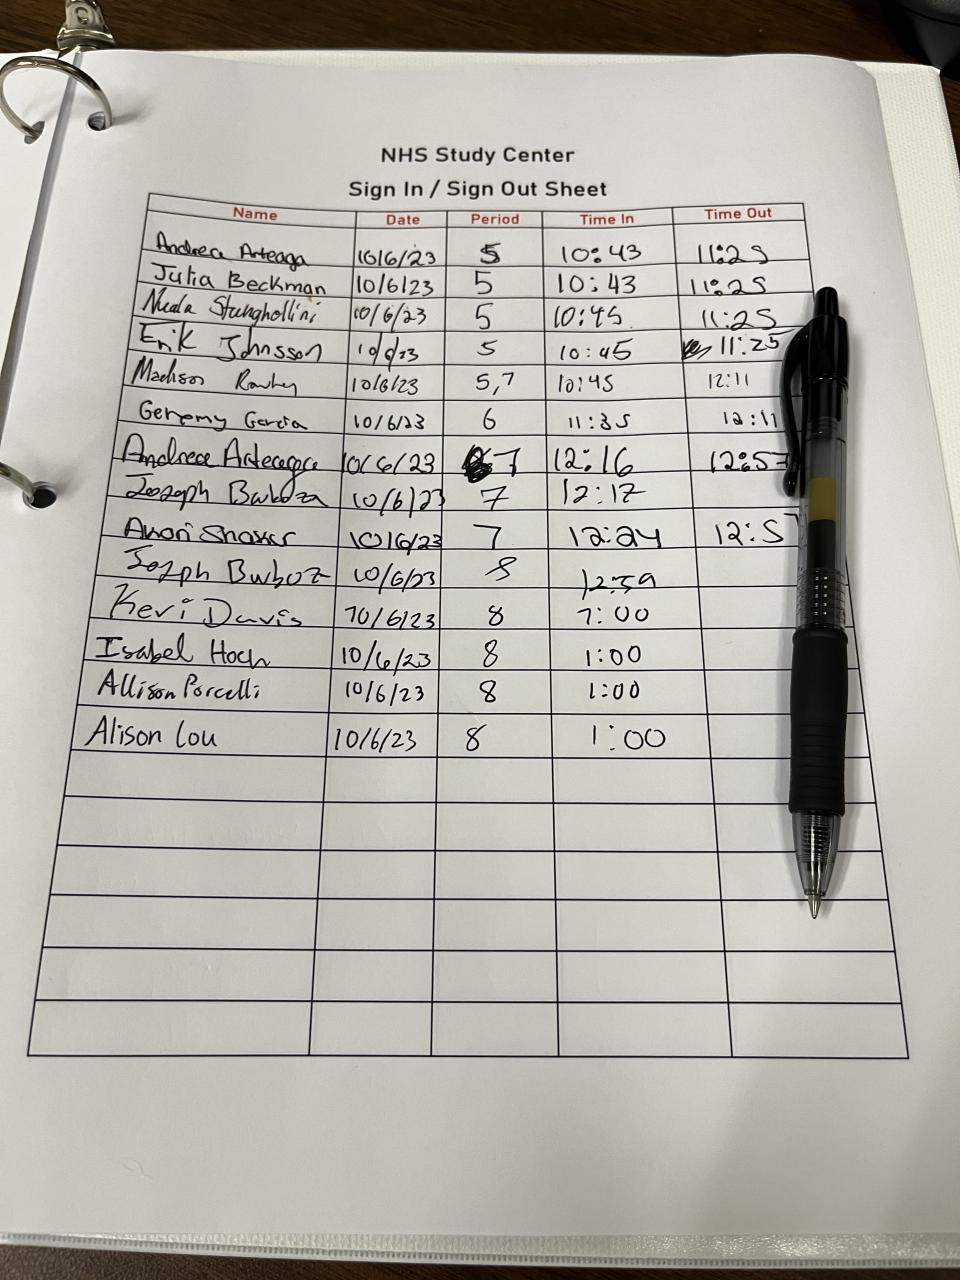 NHS Study Center
Sign In / Sign Out Sheet
Name Date Period Time In Time Out
Andrea Arteaga 10/6/23 5 10:43 11:25
Julia Beckman 10/6/23 5 10:43 11:25
Nuala 10/6/23 5 10:45 11:25
Erik Johnsson 10/6/23 5 10:45 11:25
Madison 10/6/23 5,7 10:45 12:11
Geremy Garcia 10/6/23 6 11:35 12:11
Andrea Arteaga 10/6/23 7 12:16 12:57
Joseph 10/6/23 7 12:17
10/6/23 7 12:24 12:57
Joseph 10/6/23 8 12:59
Keri Davis 10/6/23 8 1:00
Isabel Hoch 10/6/23 8 1:00
Allison Porcelli 10/6/23 8 1:00
Alison Lou 10/6/23 8 1:00